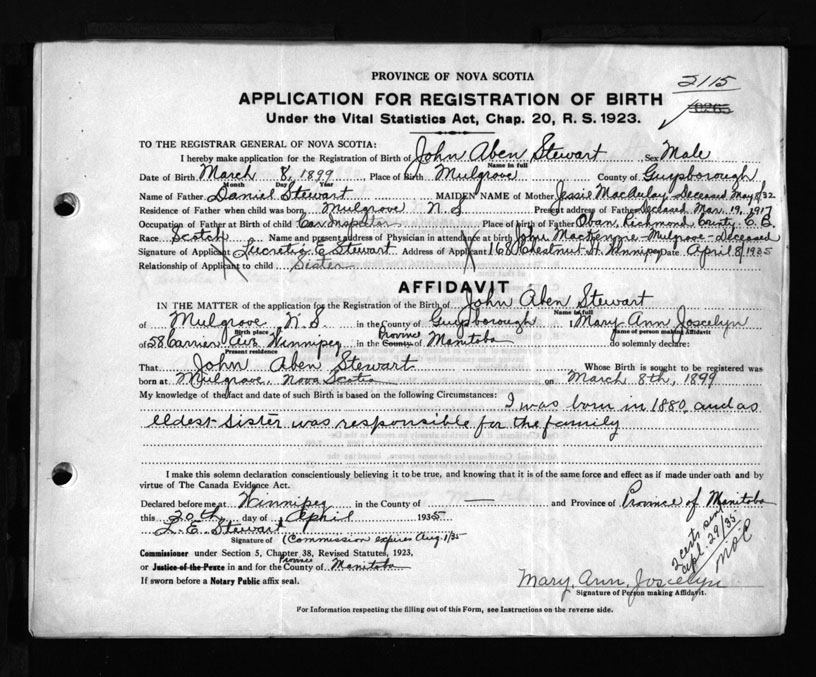 PROVINCE OF NOVA SCOTIA
2115
APPLICATION FOR REGISTRATION OF BIRTH
Under the Vital Statistics Act, Chap. 20, R. S. 1923.
TO THE REGISTRAR GENERAL OF NOVA SCOTIA:
I hereby make application for the Registration of Birth of John Aben Stewart Sex Male
Name in full
Date of Birth March 8, 1899 Place of Birth Mulgrove County of Guysborough
Month Day Year
Name of Father Daniel Stewart MAIDEN NAME of Mother Jessie MacAulay Deceased May /32
Residence of Father when child was born Mulgrove N S Present address of Father Deceased Mar. 19, 1917
Occupation of Father at Birth of child Car Inspector Place of Birth of Father Oban, Richmond County C. B.
Race Scotch Name and present address of Physician in attendance at birth John MacKenzie - Mulgrove - Deceased
Signature of Applicant E Stewart Address of Applicant 168 Chestnut St Winnipeg Date April 8, 1935
Relationship of Applicant to child Sister
AFFIDAVIT
IN THE MATTER of the application for the Registration of the Birth of John Aben Stewart
Name in full
of Mulgrove N. S. in the County of Guysborough I Mary Ann Joscelyn
Birth place Name of person making Affidavit
of 58 Carrier Ave. Winnipeg in the County of Province Manitoba do solemnly declare:
Present residence
That John Aben Stewart Whose Birth is sought to be registered was
born at Mulgrove, Nova Scotia on March 8th, 1899
My knowledge of the fact and date of such Birth is based on the following Circumstances: I was born in 1880 and as
eldest sister was responsible for the family
I make this solemn declaration conscientiously believing it to be true, and knowing that it is of the same force and effect as if made under oath and by
virtue of The Canada Evidence Act.
Declared before me at Winnipeg in the County of — and Province of Province of Manitoba
this 20th day of April 1935
L. E. Stewart
Signature of (Commission expires Aug. 1/35
Commissioner under Section 5, Chapter 38, Revised Statutes, 1923,
or Justice of the Peace in and for the County of Province Manitoba
If sworn before a Notary Public affix seal.
2 certs sent
Apl. 29/35
Mary Ann Joscelyn
Signature of Person making Affidavit.
For Information respecting the filling out of this Form, see Instructions on the reverse side.